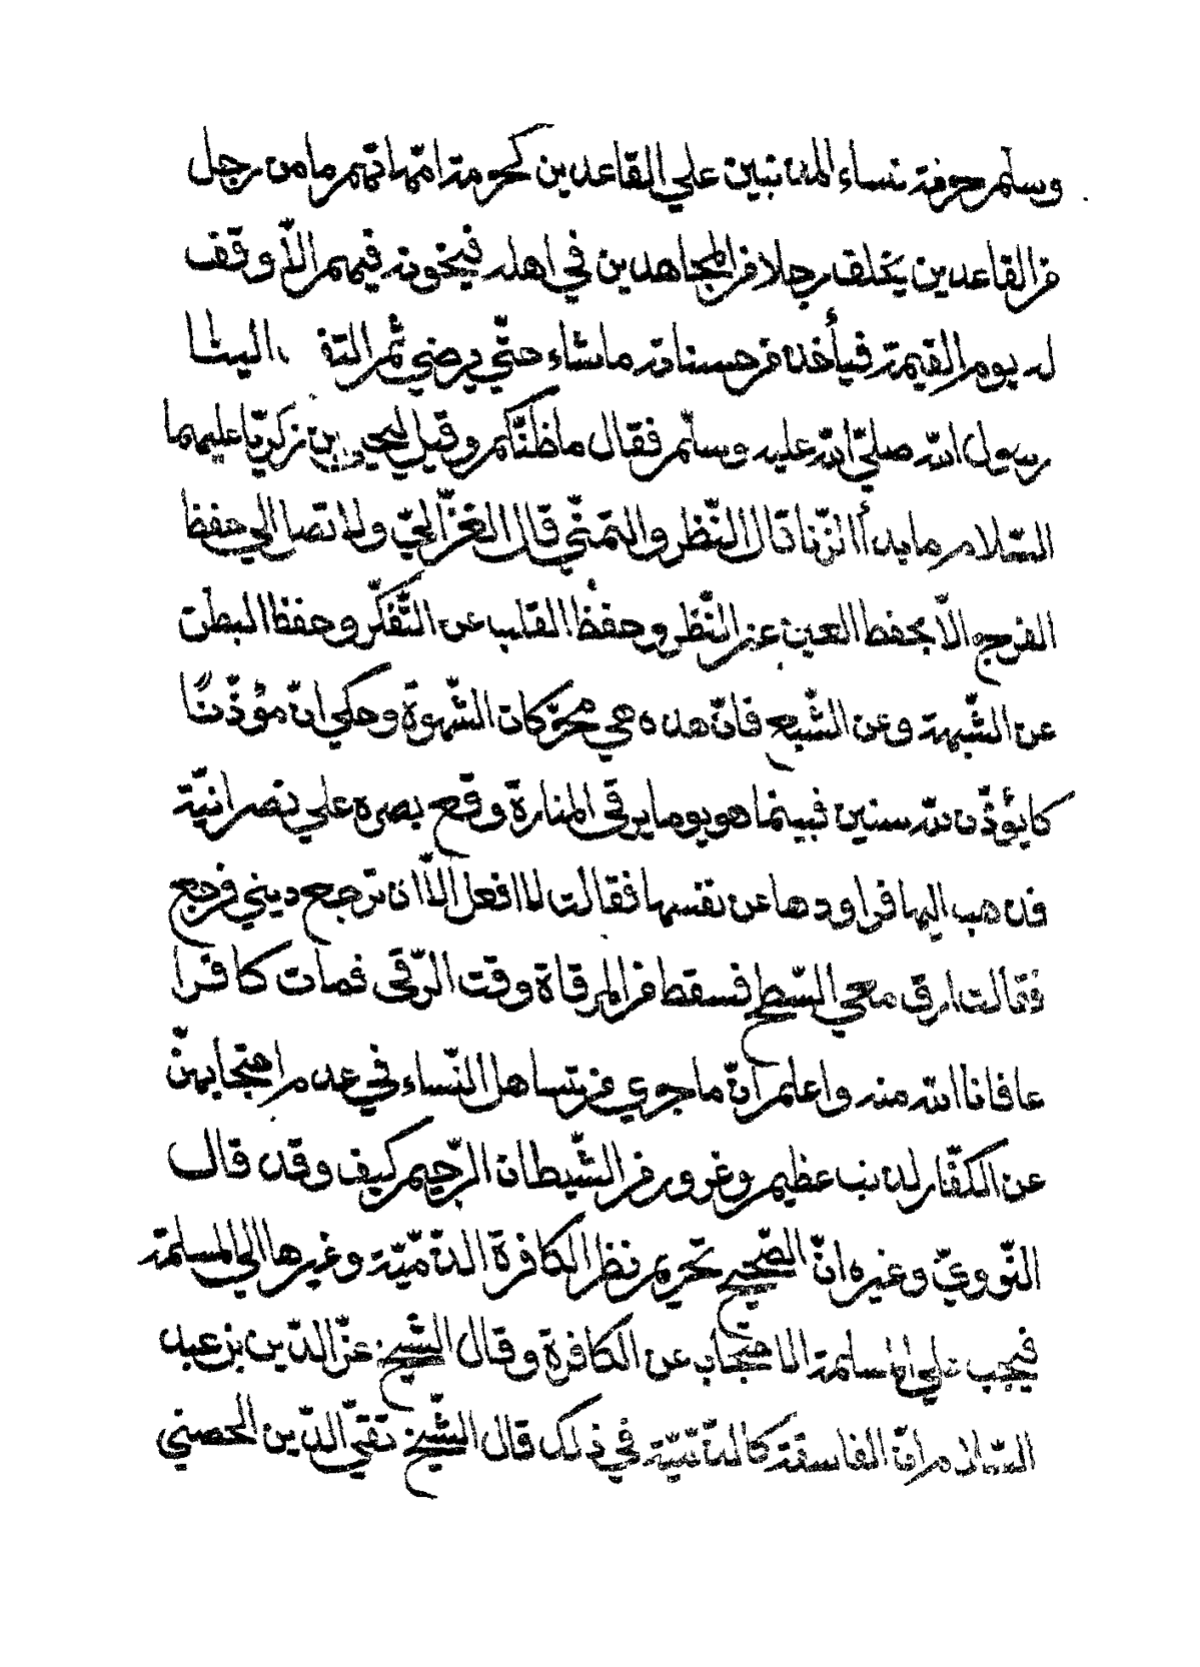 وسلّم حرمة نساء المذنبين علي القاعدين كحرمة امّهاتهم وما من رجل
من القاعدين يخلف رجلا من المجاهدين في اهله فيخونه فيهم الاّ وقف
له يوم القيمة فيأخذ من حسناته ماشاء حتّي يرضي ثمّ التفـ الينا
رسول الله صليّ الله عليه وسلّم فقال ماظنّكم وقيل ليحيي بن زكريّا عليهما
السّلام ما بدأ الزّنا قال النّظر والتمنّي قال الغزّاليّ ولا تصل الي حفظ
الفرج الاّ بحفظ العين عن النّظر وحفظ القلب عن التّفكّر وحفظ البطن
عن الشّبهة وعن الشّبع فانّ هذه هي محرّكات الشّهوة وحكي انّ مؤذّنًا
كا يؤذّن لله سنين فبينما هو يوما يرقي المنارة وقع بصره علي نصرانيّة
فذهب اليها فراودها عن نفسها فقالت لا افعل الاّ ان ترجع ديني فرجع
فقالت ارق معي السّطح فسقط من المرقاة وقت الرّقي فمات كافرا
عافانا الله منه واعلم انّ ماجري من تساهل النّساء في عدم احتجابهنّ
عن الكفّار لذنب عظيم وغرور من الشّيطان الرّجيم كيف وقد قال
النّوويّ وغيره انّ الصّحيح تحريم نظر الكافرة الذمّيّة وغيرها الي المسلمة
فيجب علي المسلمة الاحتجاب عن الكافرة وقال الشّيخ عزّ الدّين بن عبد
السّلام انّ الفاسقة كالذمّيّة في ذلك قال الشّيخ تقيّ الدّين الحصني